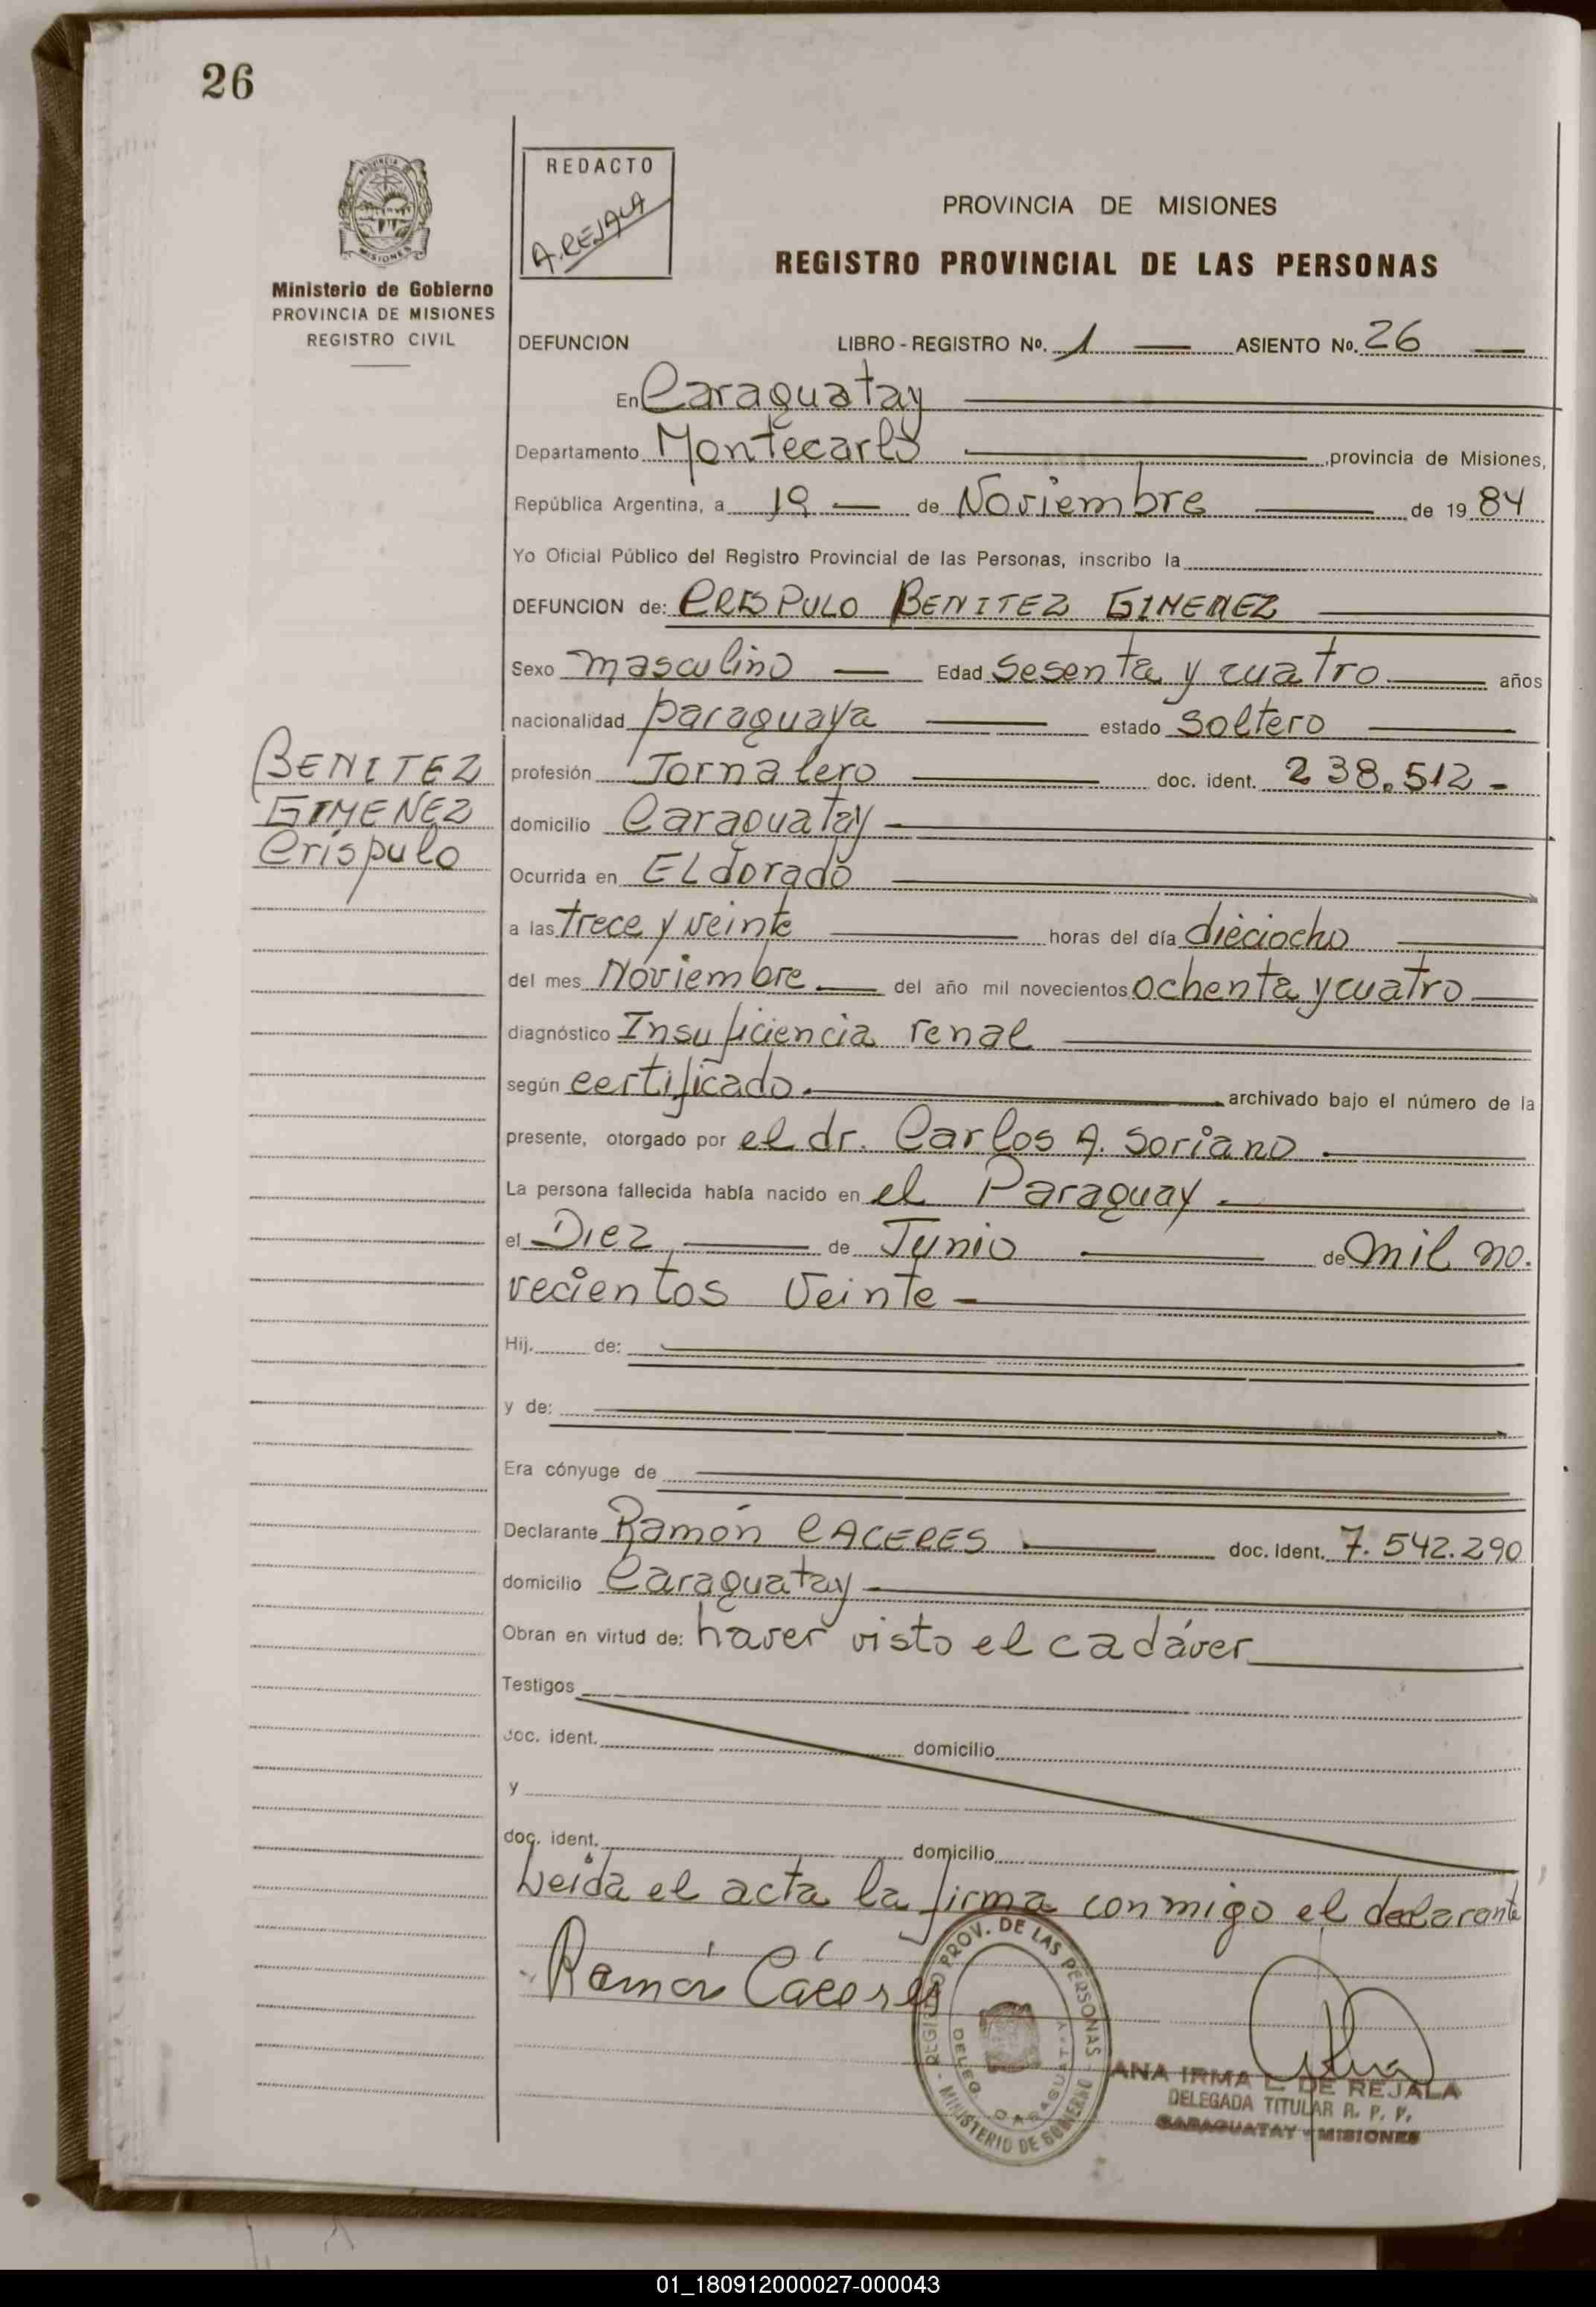 26
PROVINCIA DE
MISIONES
Ministerio de Gobierno
PROVINCIA DE MISIONES
REGISTRO CIVIL
REDACTO
A. REJALA
PROVINCIA DE MISIONES
REGISTRO PROVINCIAL DE LAS PERSONAS
DEFUNCION LIBRO - REGISTRO Nº. 1 ASIENTO Nº. 26
En Caraguatay
Departamento Montecarlo, provincia de Misiones,
República Argentina, a 19 de Noviembre de 19 84
Yo Oficial Público del Registro Provincial de las Personas, inscribo la
DEFUNCION de: CRISPULO BENITEZ GIMENEZ
Sexo masculino Edad Sesenta y cuatro años
nacionalidad paraguaya estado Soltero
BENITEZ
GIMENEZ
Críspulo
profesión Jornalero doc. ident. 238.512-
domicilio Caraguatay
Ocurrida en ELdorado
a las trece y veinte horas del día dieciocho
del mes Noviembre del año mil novecientos ochenta y cuatro
diagnóstico Insuficiencia renal
según certificado. archivado bajo el número de la
presente, otorgado por el dr. Carlos A. Soriano
La persona fallecida había nacido en el Paraguay
el Diez de Junio de mil no.
vecientos Veinte
Hij. de:
y de:
Era cónyuge de
Declarante Ramón CACERES doc. Ident. 7.542.290
domicilio Caraguatay
Obran en virtud de: haver visto el cadáver
Testigos
doc. ident. domicilio
y
doc. ident. domicilio
Leída el acta la firma conmigo el declarante
Ramón Cáceres
REGISTRO PROV. DE LAS PERSONAS - MINISTERIO DE GOBIERNO -
DELEG. CARAGUATAY
ANA IRMA L. DE REJALA
DELEGADA TITULAR R. P. P.
CARAGUATAY - MISIONES
01_180912000027-000043